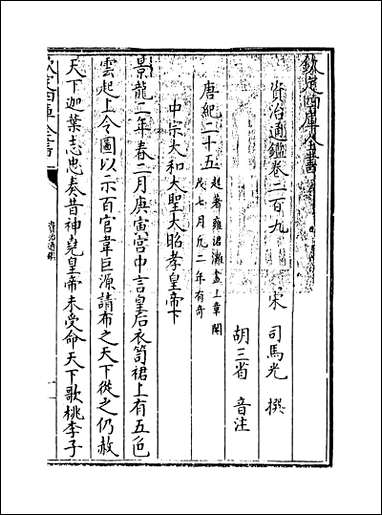 欽定四庫全書
資治通鑑卷二百九
宋 司馬光 撰
胡三省 音注
唐紀二十五
起著雍涒灘盡上章閹
茂七月凡二年有奇
中宗大和大聖大昭孝皇帝下
景龍二年春二月庚寅宫中言皇后衣笥裙上有五色
雲起上令圖以示百官韋巨源請布之天下從之仍赦
天下迦葉志忠奏昔神堯皇帝未受命天下歌桃李子